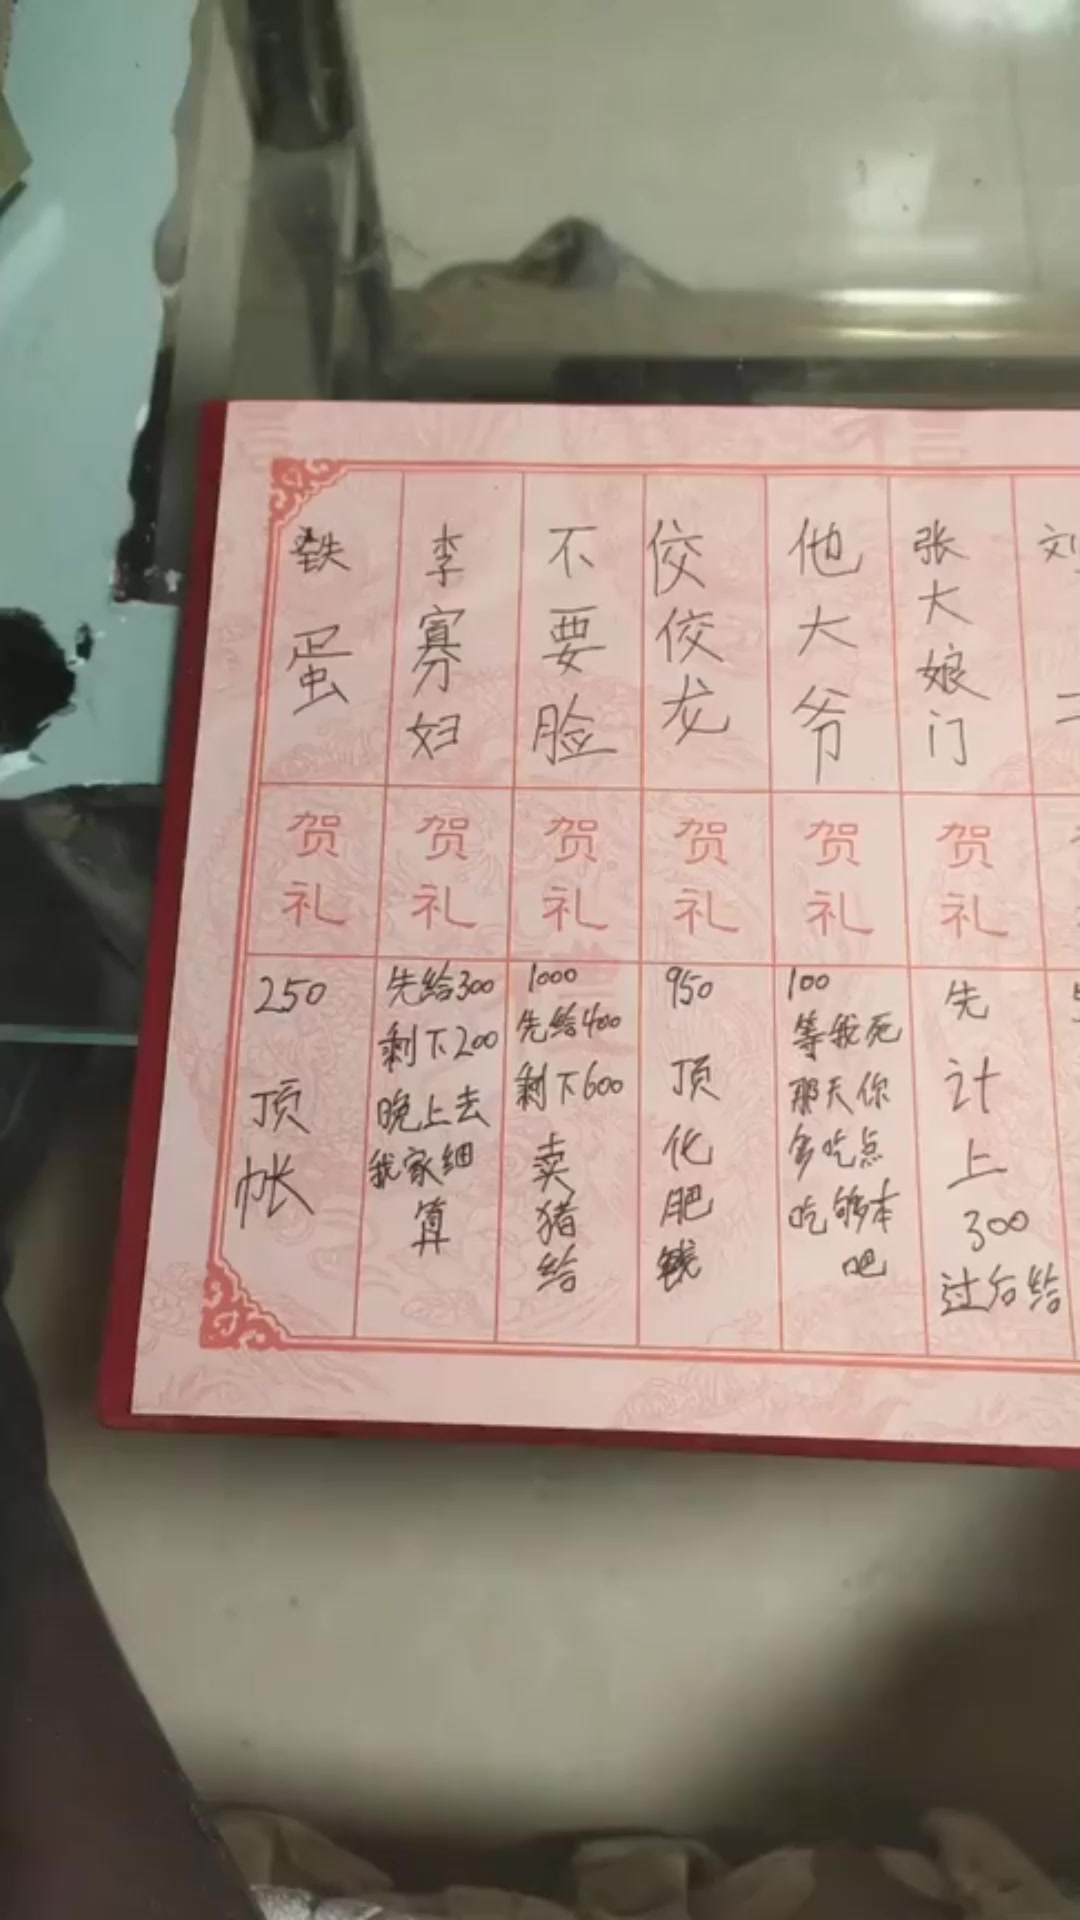 铁蛋
李寡妇
不要脸
佼佼龙
他大爷
张大娘门
刘二
贺礼
贺礼
贺礼
贺礼
贺礼
贺礼
250
顶
帐
先给300
剩下200
晚上去
我家细
算
1000
先给400
剩下600
卖
猪
给
950
顶
化
肥
钱
100
等我死
那天你
多吃点
吃够本
吧
先
计
上
300
过后给